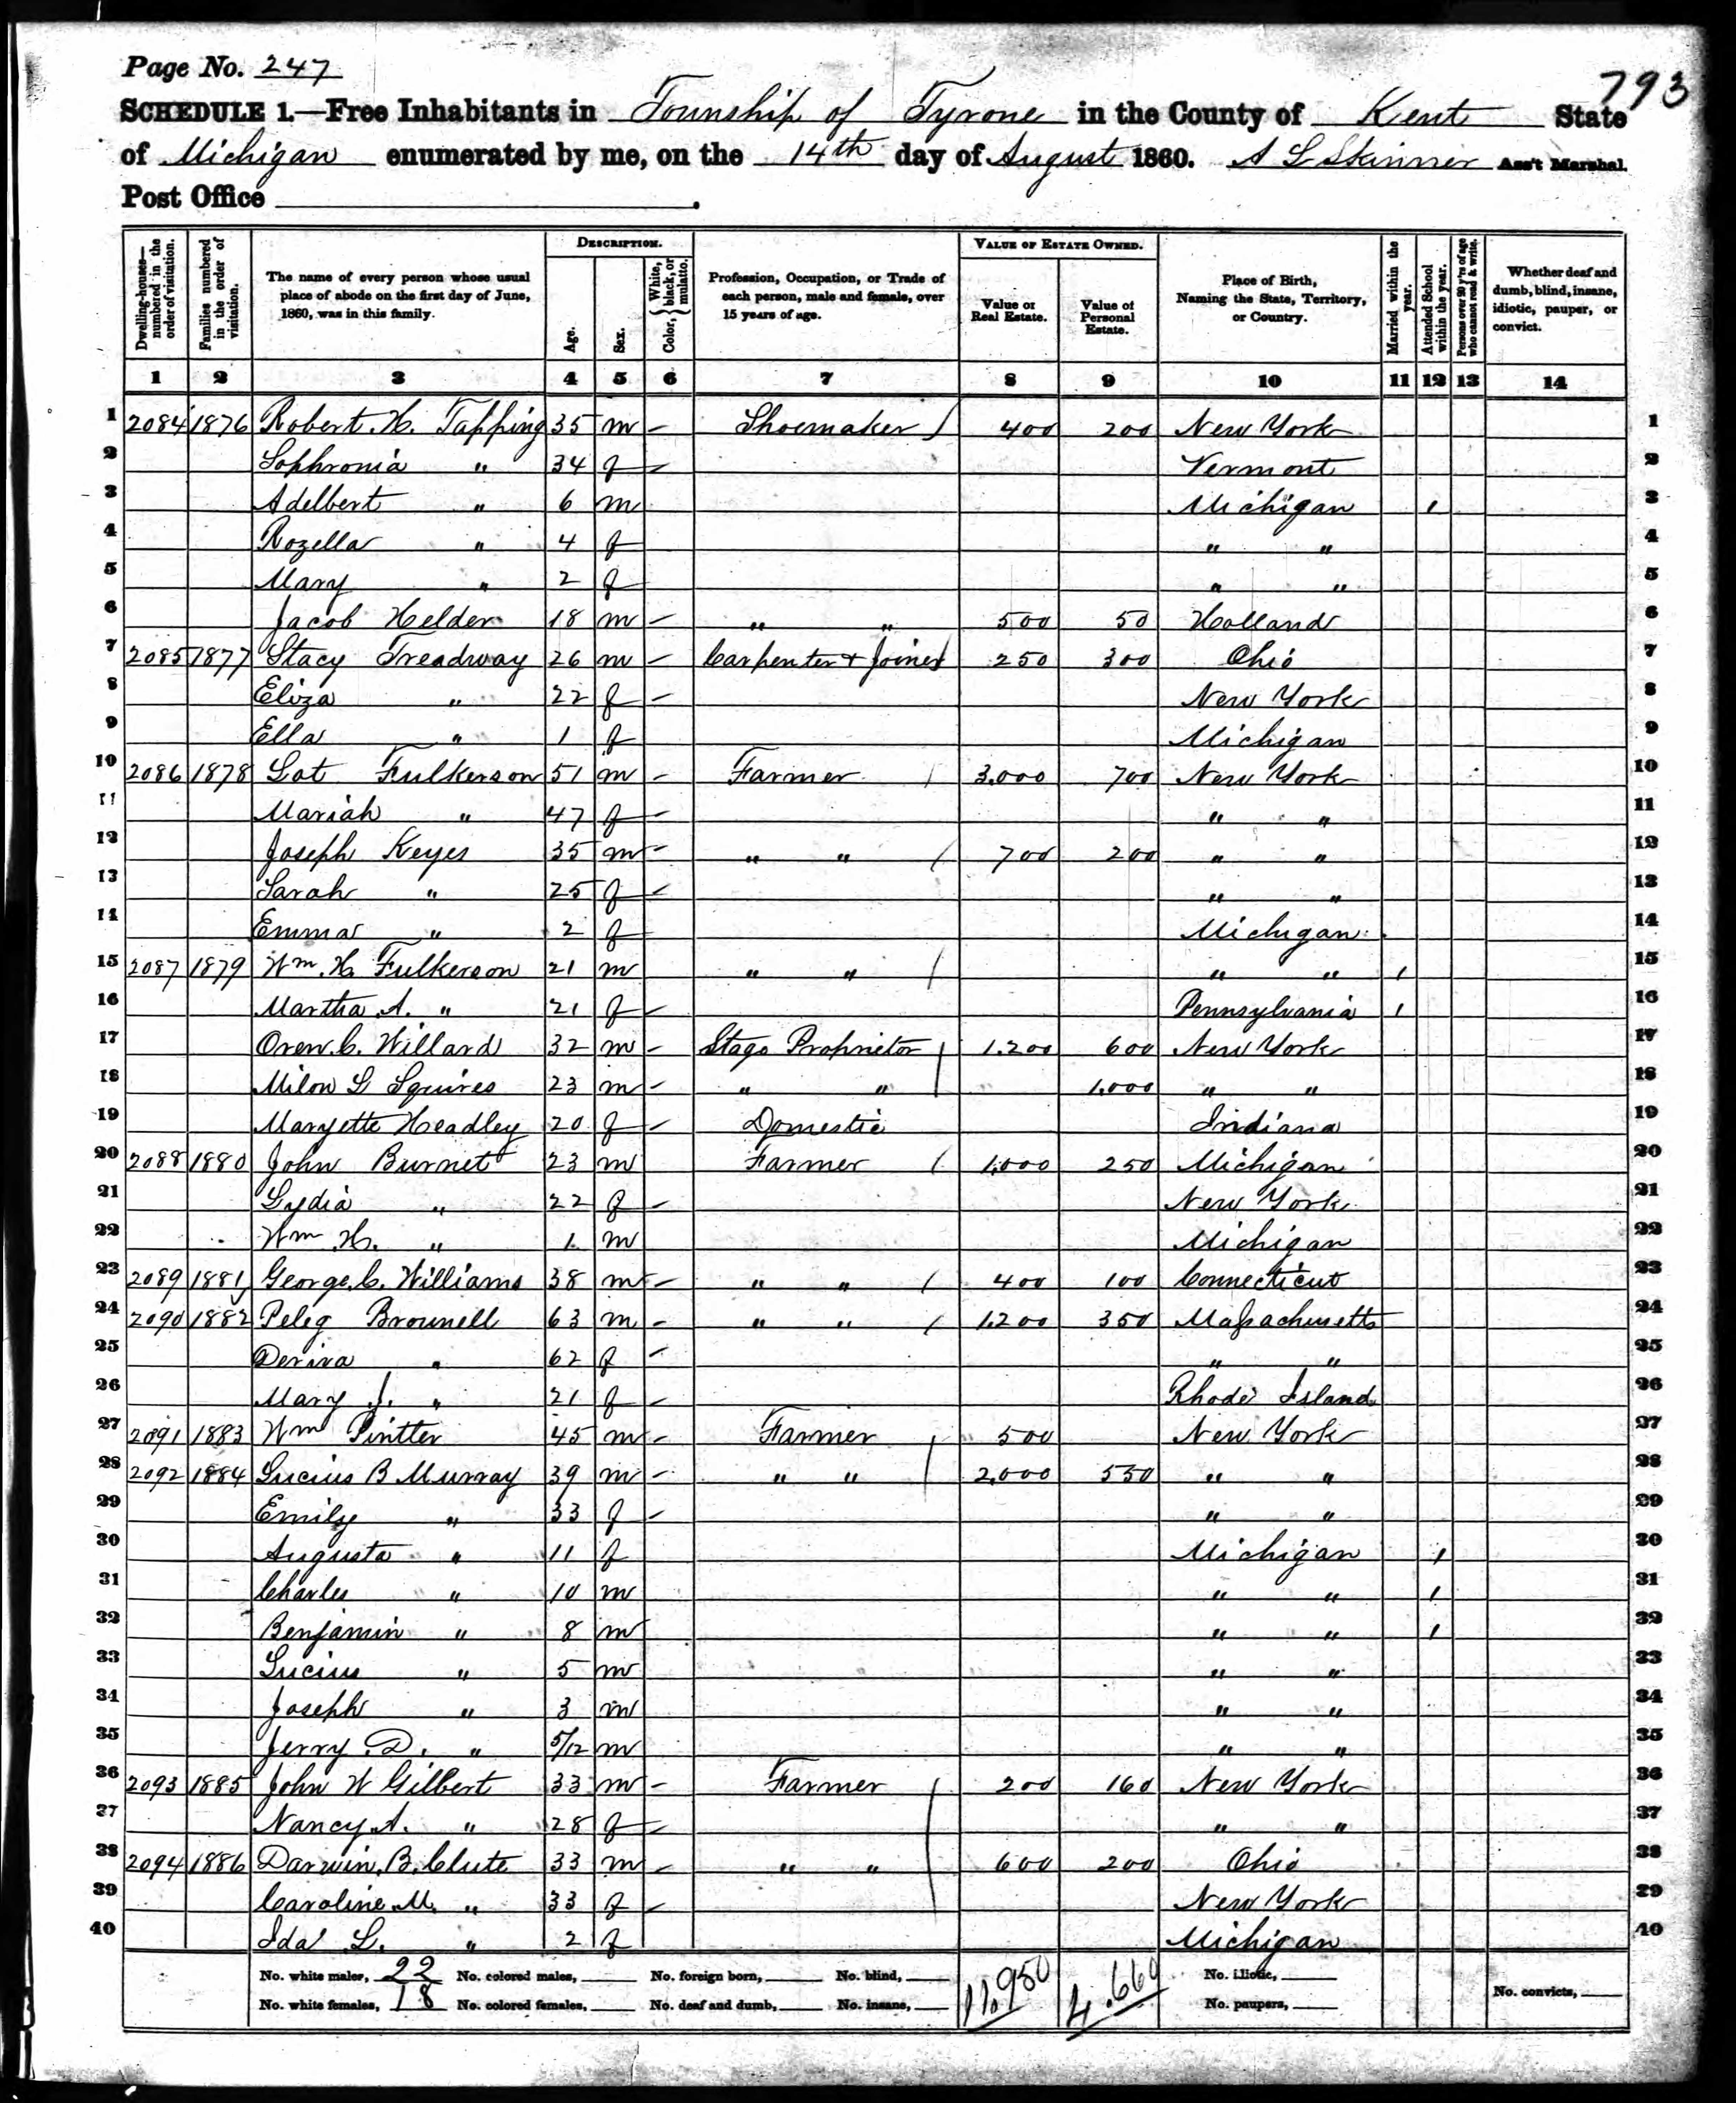 Page No. 247
793
SCHEDULE 1.—Free Inhabitants in Township of Tyrone in the County of Kent State
of Michigan enumerated by me, on the 14th day of August 1860. A L Skinner Ass't Marshal.
Post Office
Dwelling-houses—numbered in the order of visitation.
Families numbered in the order of visitation.
The name of every person whose usual place of abode on the first day of June, 1860, was in this family.
DESCRIPTION.
Age.
Sex.
Color, { White, black, or mulatto.
Profession, Occupation, or Trade of each person, male and female, over 15 years of age.
VALUE OF ESTATE OWNED.
Value of Real Estate.
Value of Personal Estate.
Place of Birth, Naming the State, Territory, or Country.
Married within the year.
Attended School within the year.
Persons over 20 y'rs of age who cannot read & write.
Whether deaf and dumb, blind, insane, idiotic, pauper, or convict.
1 2 3 4 5 6 7 8 9 10 11 12 13 14
1 2084 1876 Robert H. Tapping 35 m - Shoemaker / 400 200 New York 1
2 Sophronia " 34 f - Vermont 2
3 Adelbert " 6 m Michigan 1 3
4 Rozella " 4 f " " 4
5 Mary " 2 f " " 5
6 Jacob Helder 18 m - " " 500 50 Holland 6
7 2085 1877 Stacy Treadway 26 m - Carpenter & Joiner 250 300 Ohio 7
8 Eliza " 22 f - New York 8
9 Ella " 1 f Michigan 9
10 2086 1878 Lot Fulkerson 51 m - Farmer / 3.000 700 New York 10
11 Mariah " 47 f - " " 11
12 Joseph Keyes 35 m - " " / 700 200 " " 12
13 Sarah " 25 f - " " 13
14 Emma " 2 f Michigan 14
15 2087 1879 Wm. H. Fulkerson 21 m " " / " " 1 15
16 Martha A. " 21 f - Pennsylvania 1 16
17 Oren. C. Willard 32 m - Stage Proprietor / 1.200 600 New York 17
18 Milon L Squires 23 m - " " 1,000 " " 18
19 Maryette Headley 20 f - Domestic Indiana 19
20 2088 1880 John Burnet 23 m Farmer / 1,000 250 Michigan 20
21 Lydia " 22 f - New York 21
22 Wm H. " 1 m Michigan 22
23 2089 1881 George. C. Williams 38 m - " " / 400 100 Connecticut 23
24 2090 1882 Peleg Brownell 63 m - " " / 1.200 350 Massachusetts 24
25 " 62 f - " " 25
26 Mary J. " 21 f - Rhode Island 26
27 2091 1883 Wm Pintter 45 m - Farmer / 500 New York 27
28 2092 1884 Lucius B Murray 39 m - " " 2,000 550 " " 28
29 Emily " 33 f - " " 29
30 Augusta " 11 f Michigan 1 30
31 Charles " 10 m " " 1 31
32 Benjamin " 8 m " " 1 32
33 Lucius " 5 m " " 33
34 Joseph " 3 m " " 34
35 Jerry D. " 5/12 m " " 35
36 2093 1885 John W Gilbert 33 m - Farmer / 200 160 New York 36
37 Nancy A. " 28 f - " " 37
38 2094 1886 Darwin, B. Clute 33 m - " " 600 200 Ohio 38
39 Caroline M. " 33 f - New York 39
40 Ida L. " 2 f Michigan 40
No. white males, 22 No. colored males, No. foreign born, No. blind, 11.950 4.660 No. idiotic,
No. white females, 18 No. colored females, No. deaf and dumb, No. insane, No. paupers, No. convicts,